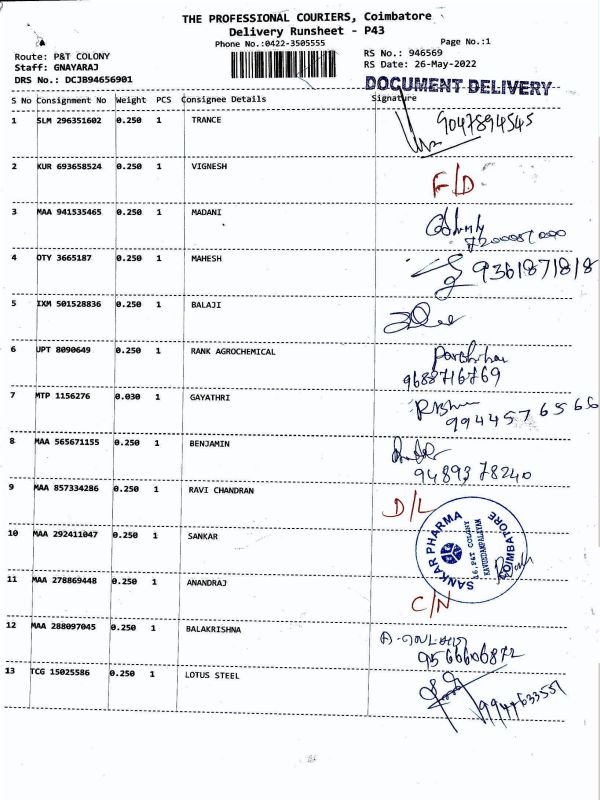 THE PROFESSIONAL COURIERS, Coimbatore
Delivery Runsheet - P43
Phone No.:0422-3505555
Page No.:1
Route: P&T COLONY
RS No.: 946569
Staff: GNAYARAJ
RS Date: 26-May-2022
DRS No.: DCJB94656901
DOCUMENT DELIVERY
S No Consignment No Weight PCS Consignee Details Signature
1 SLM 296351602 0.250 1 TRANCE 9047894545
2 KUR 693658524 0.250 1 VIGNESH F/D
3 MAA 941535465 0.250 1 MADANI
4 OTY 3665187 0.250 1 MAHESH 9361871818
5 IXM 501528836 0.250 1 BALAJI
6 UPT 8090649 0.250 1 RANK AGROCHEMICAL
9688716769
7 MTP 1156276 0.030 1 GAYATHRI
9944576566
8 MAA 565671155 0.250 1 BENJAMIN
9489378240
9 MAA 857334286 0.250 1 RAVI CHANDRAN D/L
10 MAA 292411047 0.250 1 SANKAR
SANKAR PHARMA
16, P&T COLONY
KAVUNDAMPALAYAM
COIMBATORE
11 MAA 278869448 0.250 1 ANANDRAJ C/N
12 MAA 288097045 0.250 1 BALAKRISHNA
9566606872
13 TCG 15025586 0.250 1 LOTUS STEEL